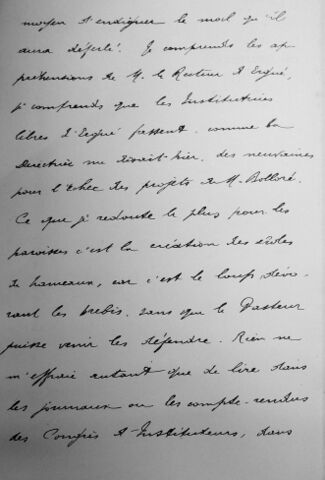 moyen d'endiguer le mal qu'il
aura déferlé. Je comprends les ap
préhensions de M. le Recteur d'Ergué,
je comprends que les Institutrices
libres d'Ergué fassent, comme la
Directrice me disait hier, des neuvaines
pour l'échec des projets de M. Bolloré.
Ce que je redoute le plus pour les
paroisses c'est la création des écoles
de hameaux, car c'est le loup dévo
rant les brebis, sans que le Pasteur
puisse venir les défendre. Rien ne
m'effraie autant que de lire dans
les journaux ou les compte-rendus
des Congrès d'Instituteurs, dans